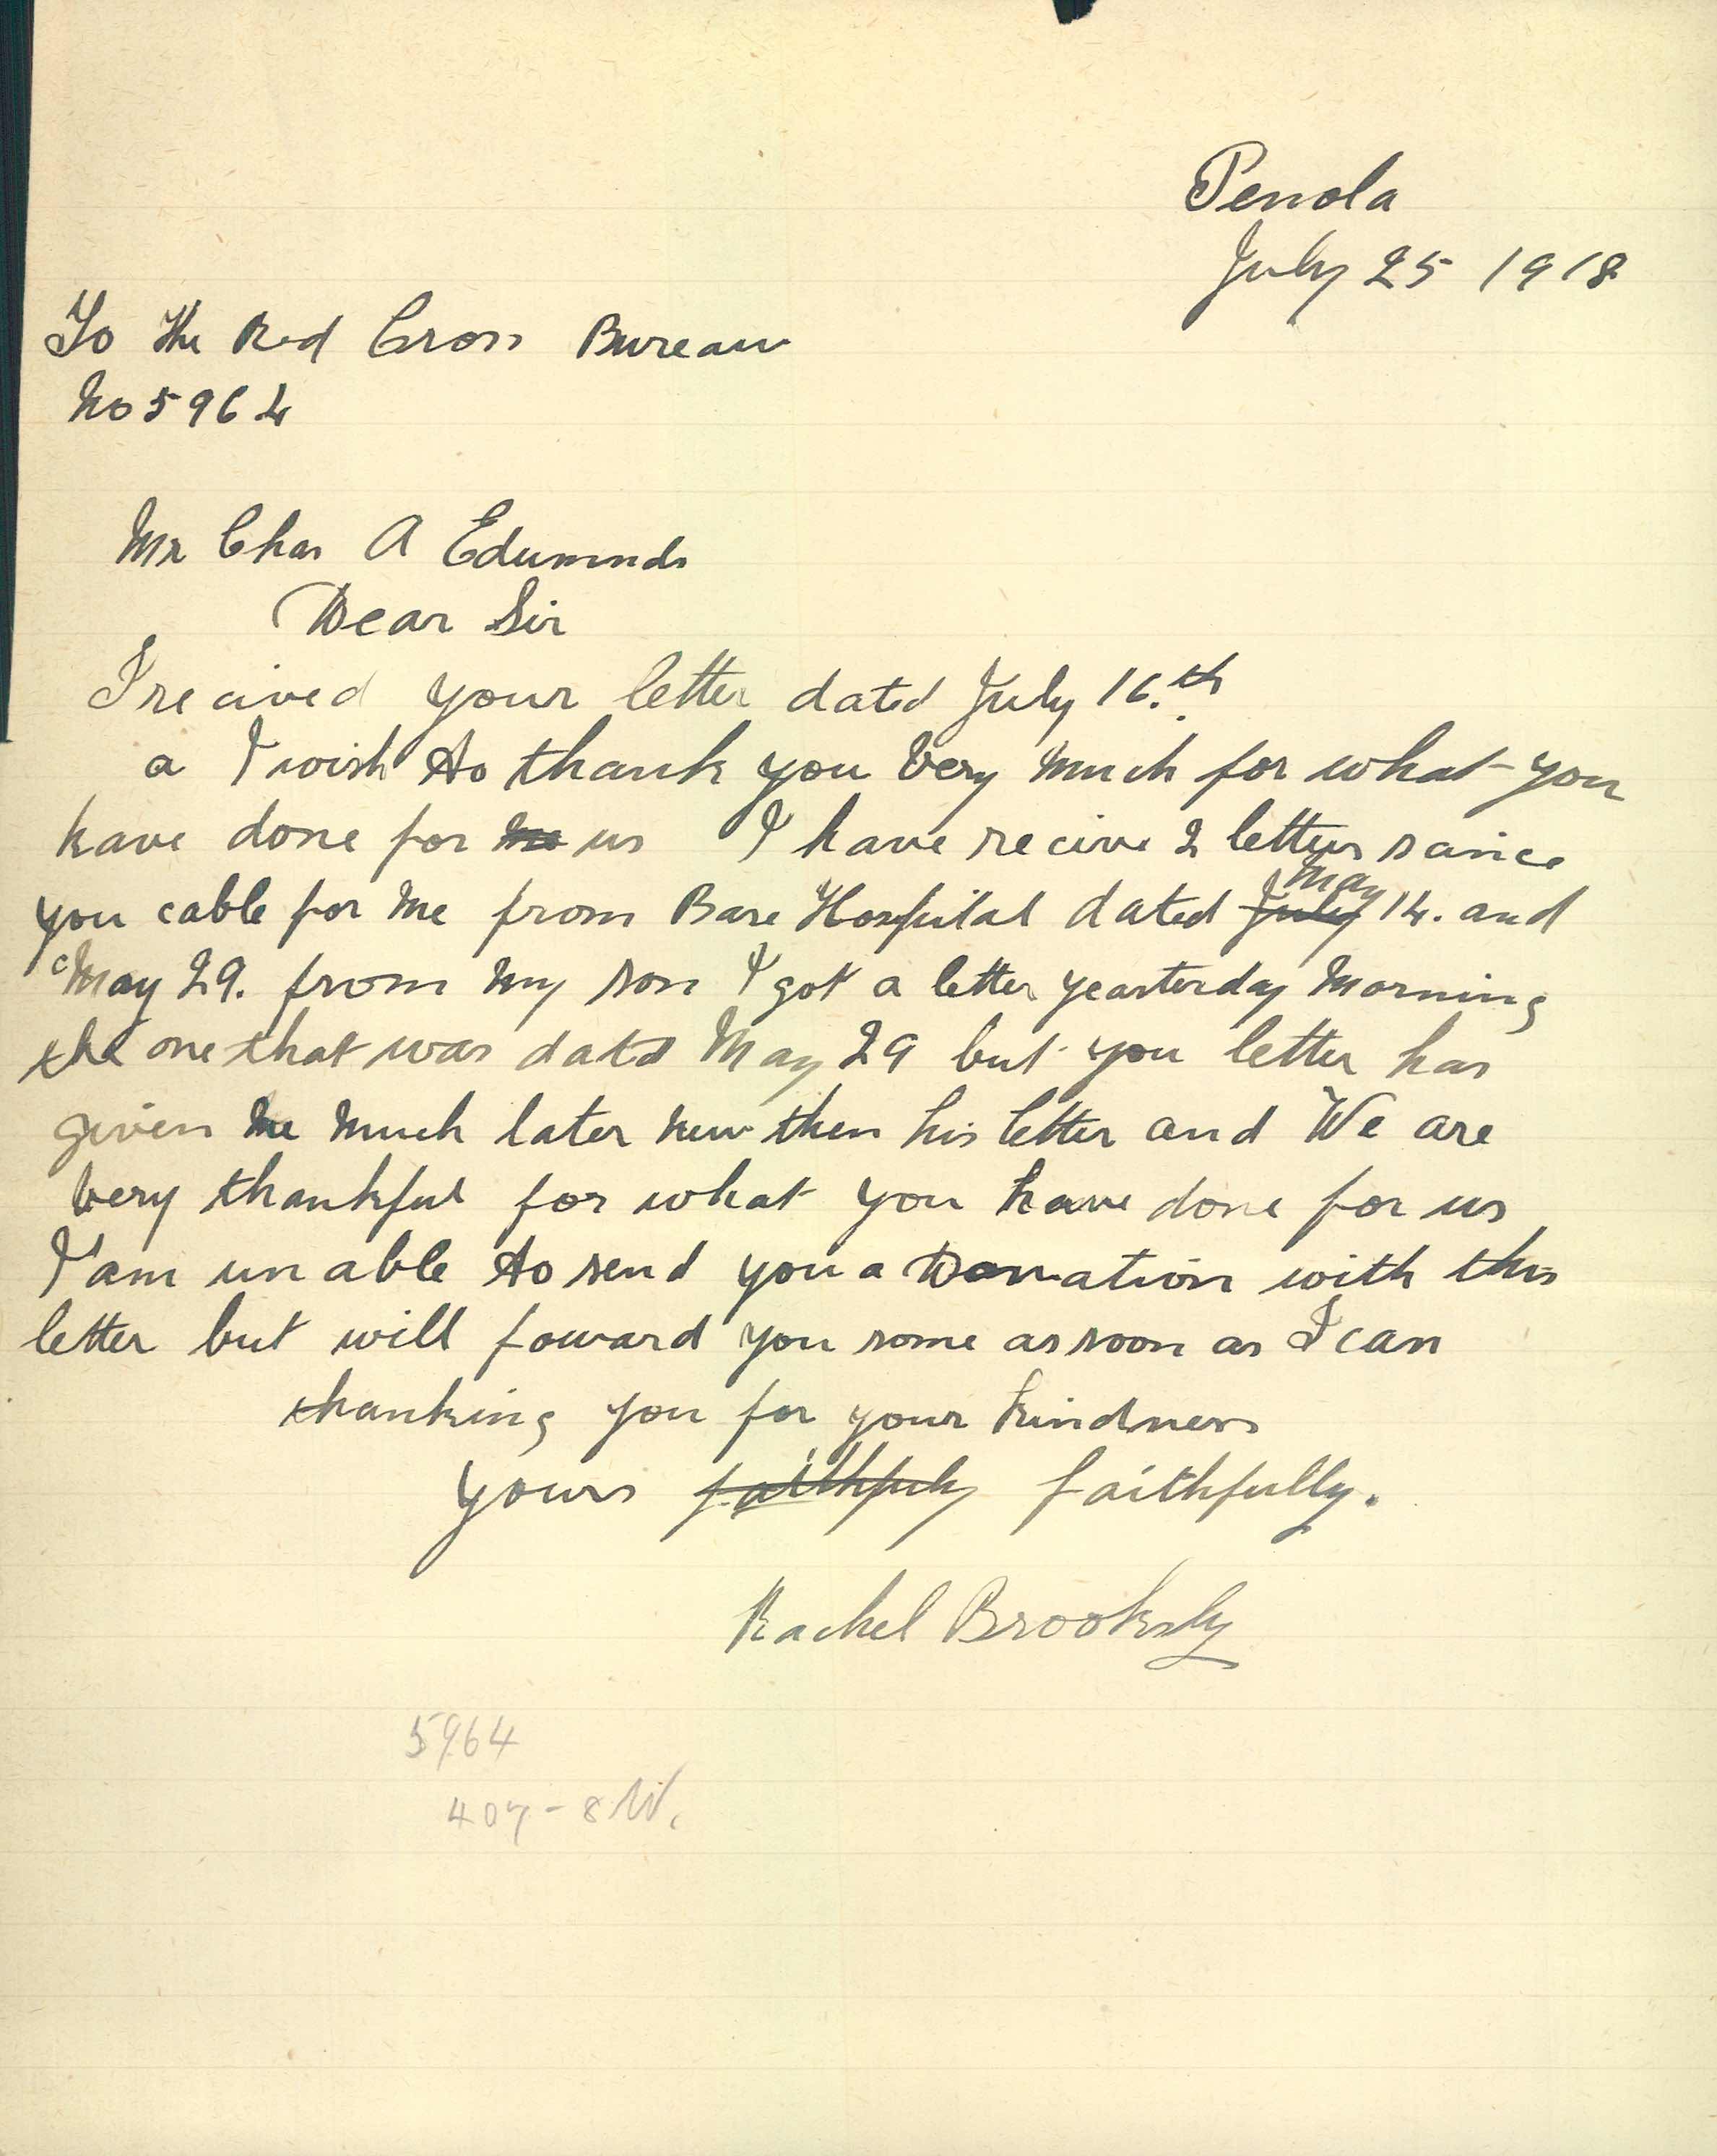 Penola
July 25 1918
To the Red Cross Bureau
No 5964
Mr Chas A Edumnds
Dear Sir
I recived your letter dated July 16.th
a I wish to thank you very much for what you
have done for me us I have recive 2 letters saince
you cable for me from Base Hospital dated July May 14. and
May 29. from my son I got a letter yearsterday morning
the one that was datd May 29 but you letter has
given me much later new then his letter and We are
very thankful for what you have done for us
I am unable to send you a Donation with this
letter but will foward you some as soon as I can
thanking you for your kindness
yours faithfuly faithfully.
Rachel Brooksby
5964
407-8